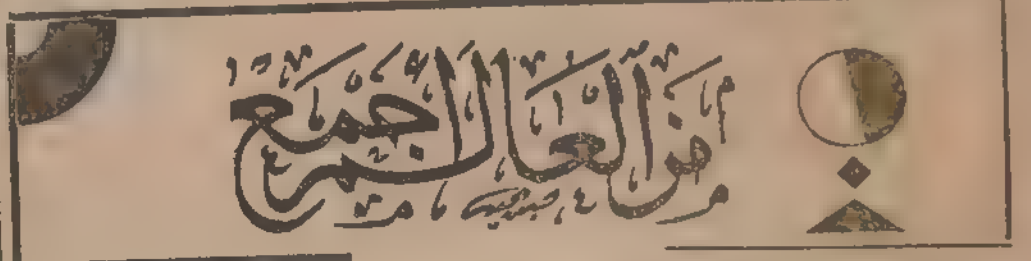 من العالم أجمع